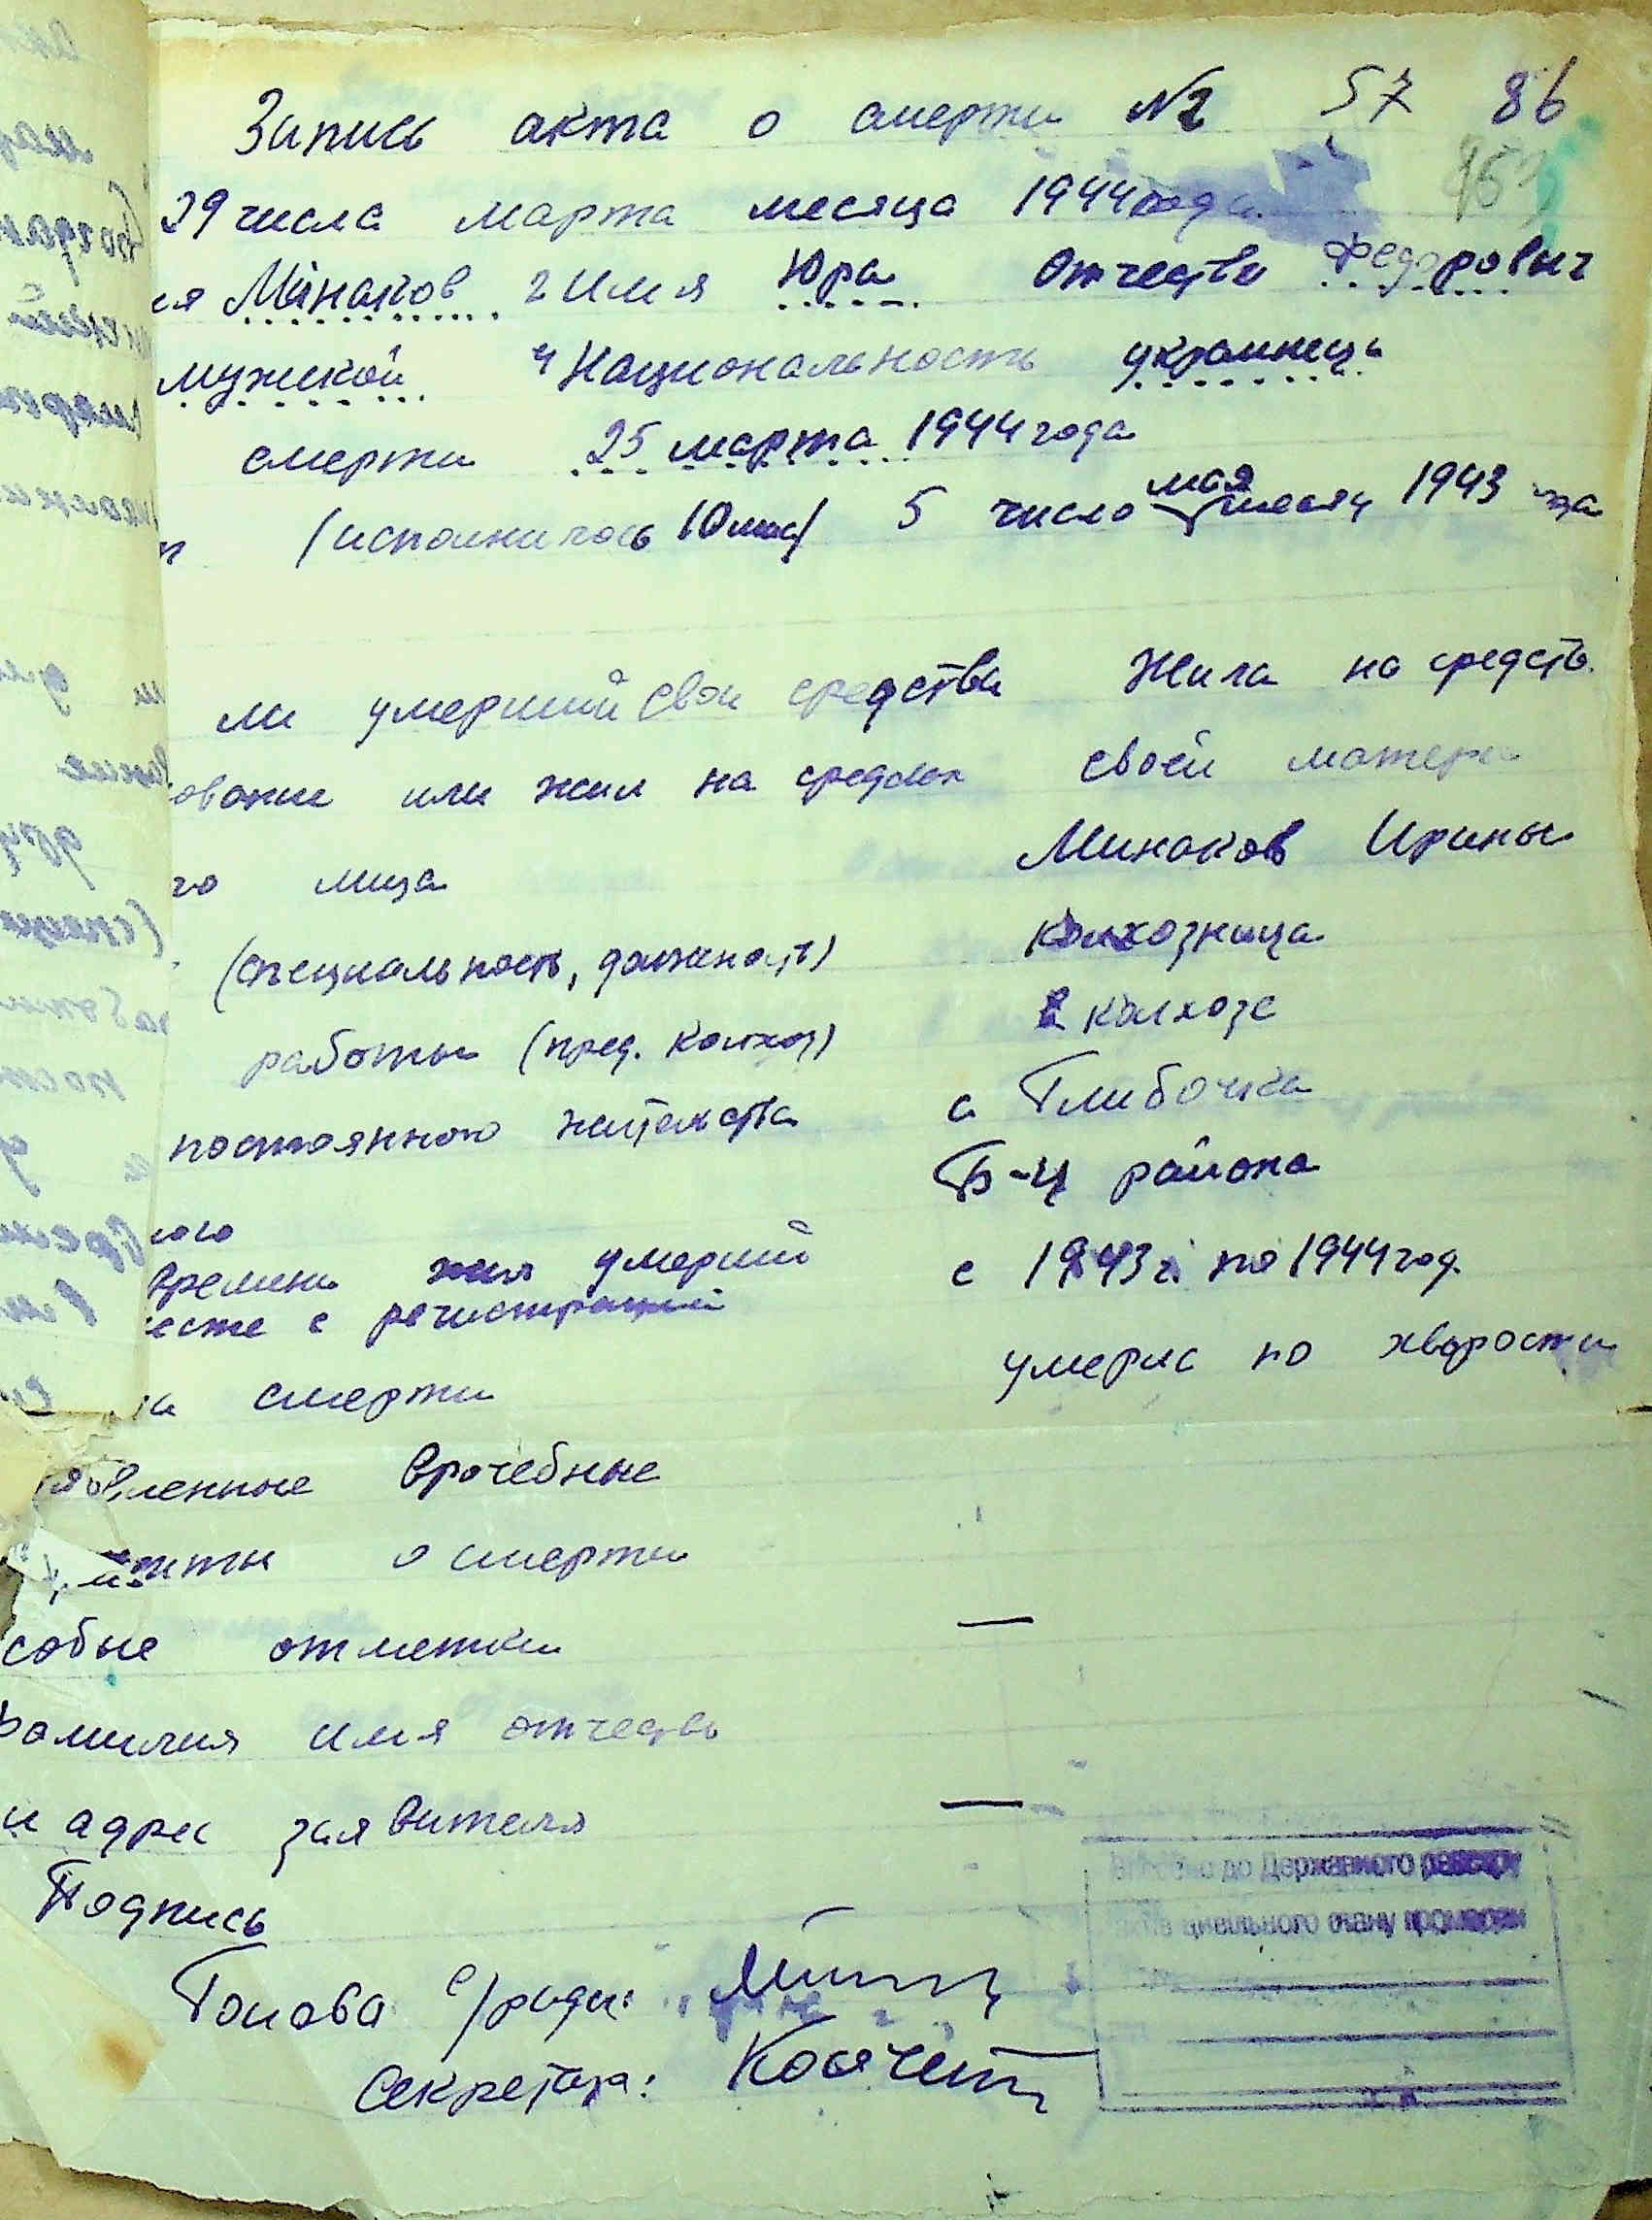 Запись акта о смерти № 57 86
29 числа марта месяца 1944 года
ия Мінаков 2 Имя Юра Отчество Федорович
мужской 4 Национальность украинець
смерти 25 марта 1944 года
(исполнилось 10 мес) 5 число мая месяц 1943 года
ли умерший свои средства Жила на средств.
ование или жил на средства своей матери
го лица Минаков Ирины
(специальность, должность) колхозница
работы (пред. колхоз) в колхозе
постоянного жительства с Глибочка
Б-Ц района
ного
времени жил умерший с 1943 г. по 1944 год.
есте с регистрацией
на смерти умерис по хворости
явленные врачебные
менты о смерти
собые отметки —
Фамилия имя отчество
и адрес заявителя —
Подпись
до Державного реєстру
цивільного стану громадян
Голова с/ради:
Секретар: